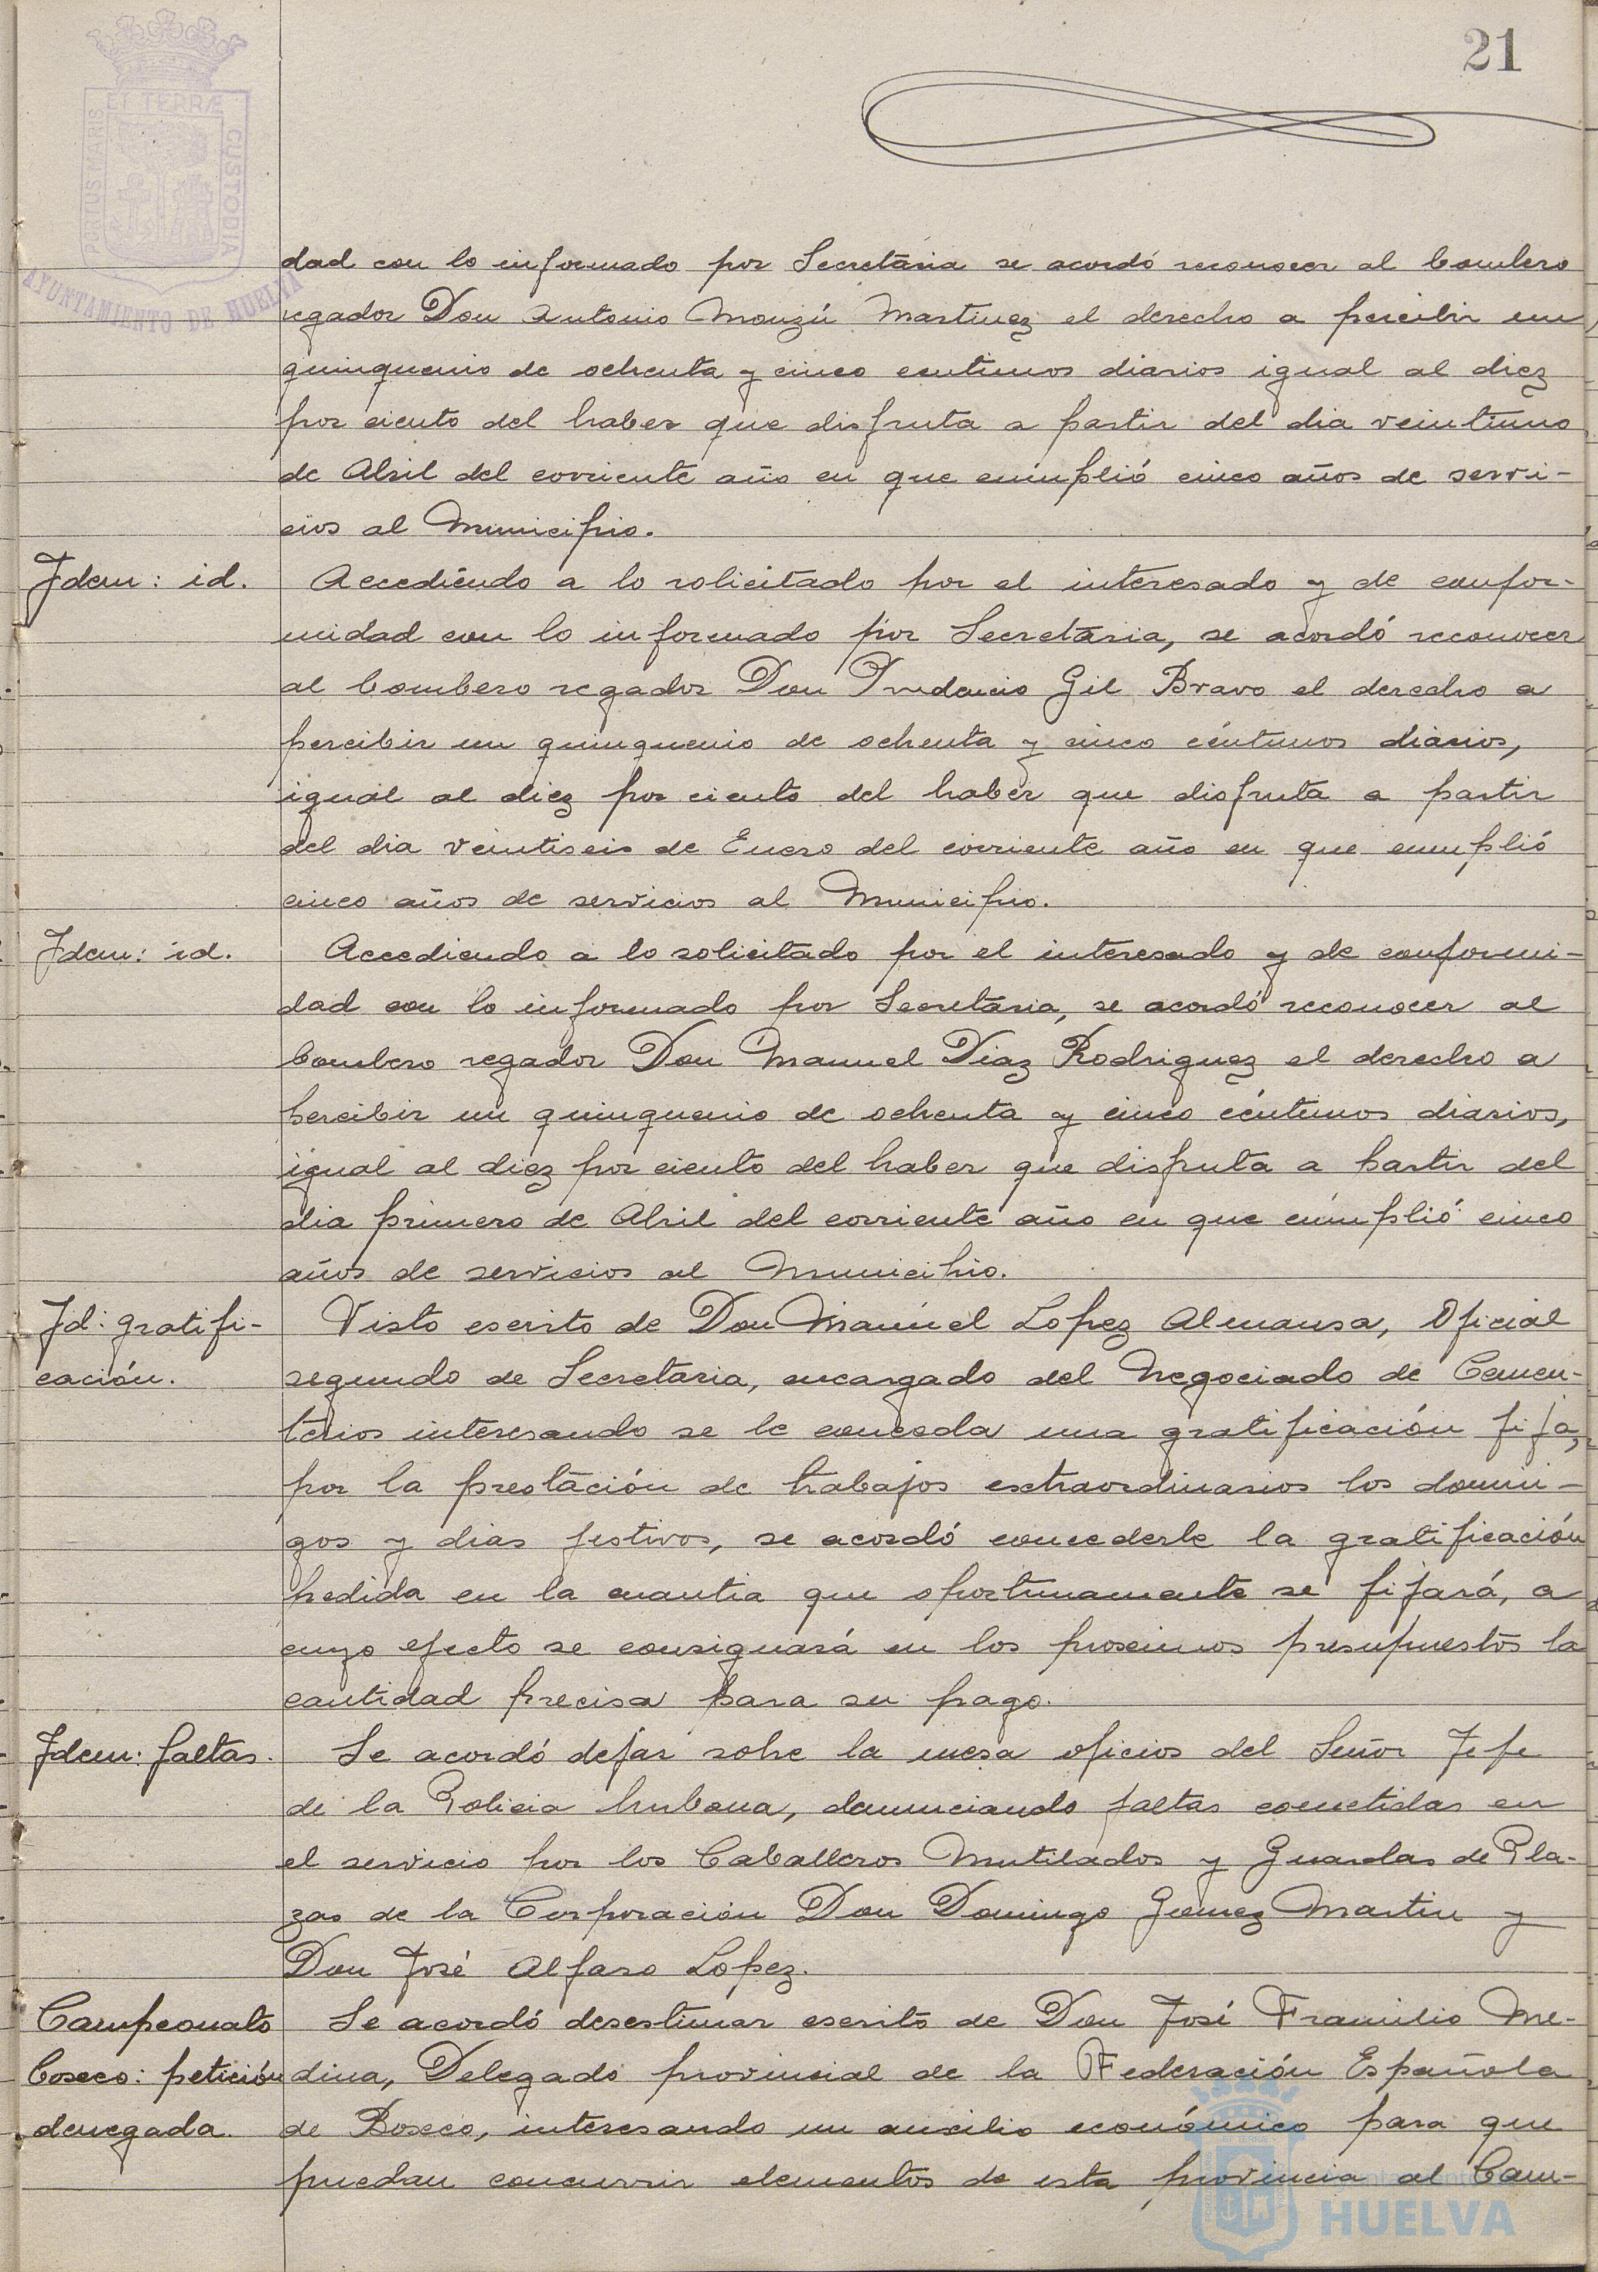 21
PORTUS MARIS
ET TERRÆ
CUSTODIA
AYUNTAMIENTO DE HUELVA
dad con lo informado por Secretaria se acordó reconocer al bombero
regador Don Antonio Monzú Martinez el derecho a percibir un
quinquenio de ochenta y cinco centimos diarios igual al diez
por ciento del haber que disfruta a partir del dia veintiuno
de Abril del corriente año en que cumplió cinco años de servi-
cios al Municipio.
Idem: id.
Accediendo a lo solicitado por el interesado y de confor-
midad con lo informado por Secretaria, se acordó reconocer
al bombero regador Don Prudencio Gil Bravo el derecho a
percibir un quinquenio de ochenta y cinco céntimos diarios,
igual al diez por ciento del haber que disfruta a partir
del dia veintiseis de Enero del corriente año en que cumplió
cinco años de servicios al Municipio.
Idem: id.
Accediendo a lo solicitado por el interesado y de conformi-
dad con lo informado por Secretaria, se acordó reconocer al
bombero regador Don Manuel Diaz Rodriguez el derecho a
percibir un quinquenio de ochenta y cinco céntimos diarios,
igual al diez por ciento del haber que disfruta a partir del
dia primero de Abril del corriente año en que cumplió cinco
años de servicios al Municipio.
Id: gratifi-
cación.
Visto escrito de Don Manuel Lopez Almansa, Oficial
segundo de Secretaria, encargado del Negociado de Cemen-
terios interesando se le conceda una gratificación fija,
por la prestación de trabajos extraordinarios los domin-
gos y dias festivos, se acordó concederle la gratificación
pedida en la cuantia que oportunamente se fijará, a
cuyo efecto se consignará en los proximos presupuestos la
cantidad precisa para su pago.
Idem: faltas.
Se acordó dejar sobre la mesa oficios del Señor Jefe
de la Policia Urbana, denunciando faltas cometidas en
el servicio por los Caballeros Mutilados y Guardas de Pla-
zas de la Corporación Don Domingo Gomez Martin y
Don José Alfaro Lopez.
Campeonato
boxeo: petición
denegada.
Se acordó desestimar escrito de Don José Framilio Me-
dina, Delegado provincial de la Federación Española
de Boxeo, interesando un auxilio económico para que
puedan concurrir elementos de esta provincia al Cam-
HUELVA